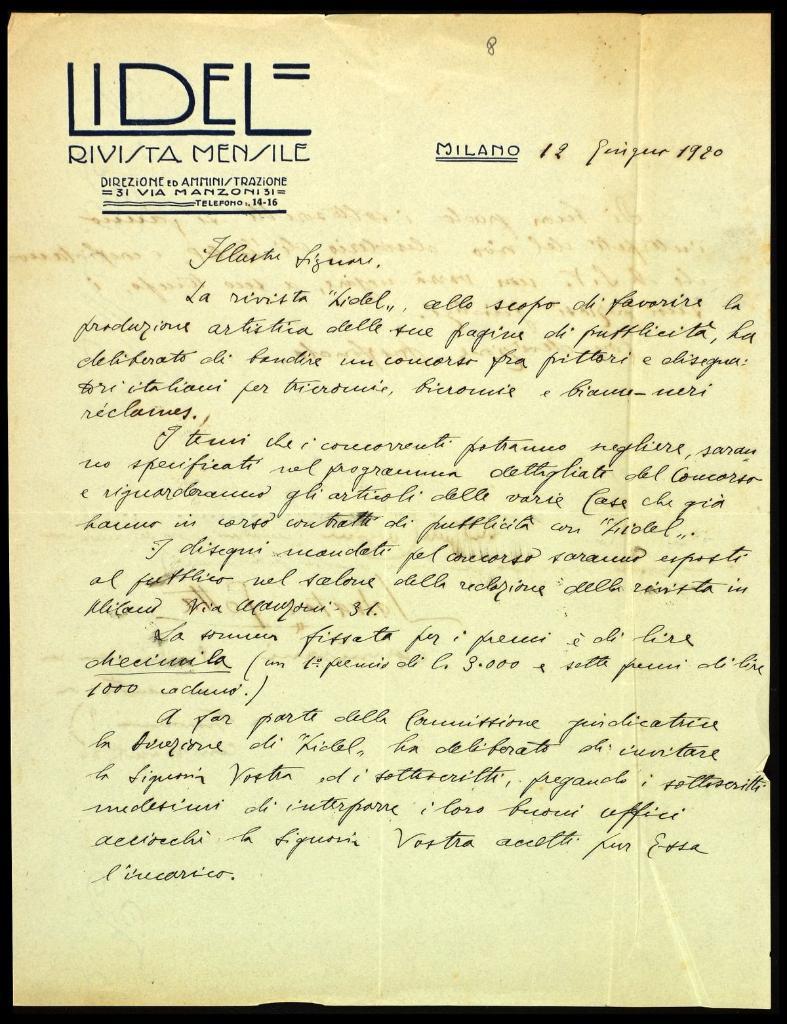 8
LIDEL
RIVISTA MENSILE
DIREZIONE ED AMMINISTRAZIONE
31 VIA MANZONI 31
TELEFONO: 14-16
MILANO 12 Giugno 1920
Illustre Signore,
La rivista "Lidel", allo scopo di favorire la
produzione artistica delle sue pagine di pubblicità, ha
deliberato di bandire un concorso fra pittori e disegna-
tori italiani per tricromie, bicromie e bianco-neri
réclames.
I temi che i concorrenti potranno scegliere, saran
no specificati nel programma dettagliato del Concorso
e riguarderanno gli articoli delle varie Case che già
hanno in corso contratti di pubblicità con "Lidel".
I disegni mandati pel concorso saranno esposti
al pubblico nel salone della redazione della rivista in
Milano Via Manzoni 31.
La somma fissata per i premi è di lire
diecimila (un 1º premio di L. 3.000 e sette premi di lire
1000 caduno.)
A far parte della Commissione giudicatrice
la Direzione di "Lidel" ha deliberato di invitare
la Signoria Vostra ed i sottoscritti, pregando i sottoscritti
medesimi di interporre i loro buoni uffici
acciocchè la Signoria Vostra accetti pur Essa
l'incarico.